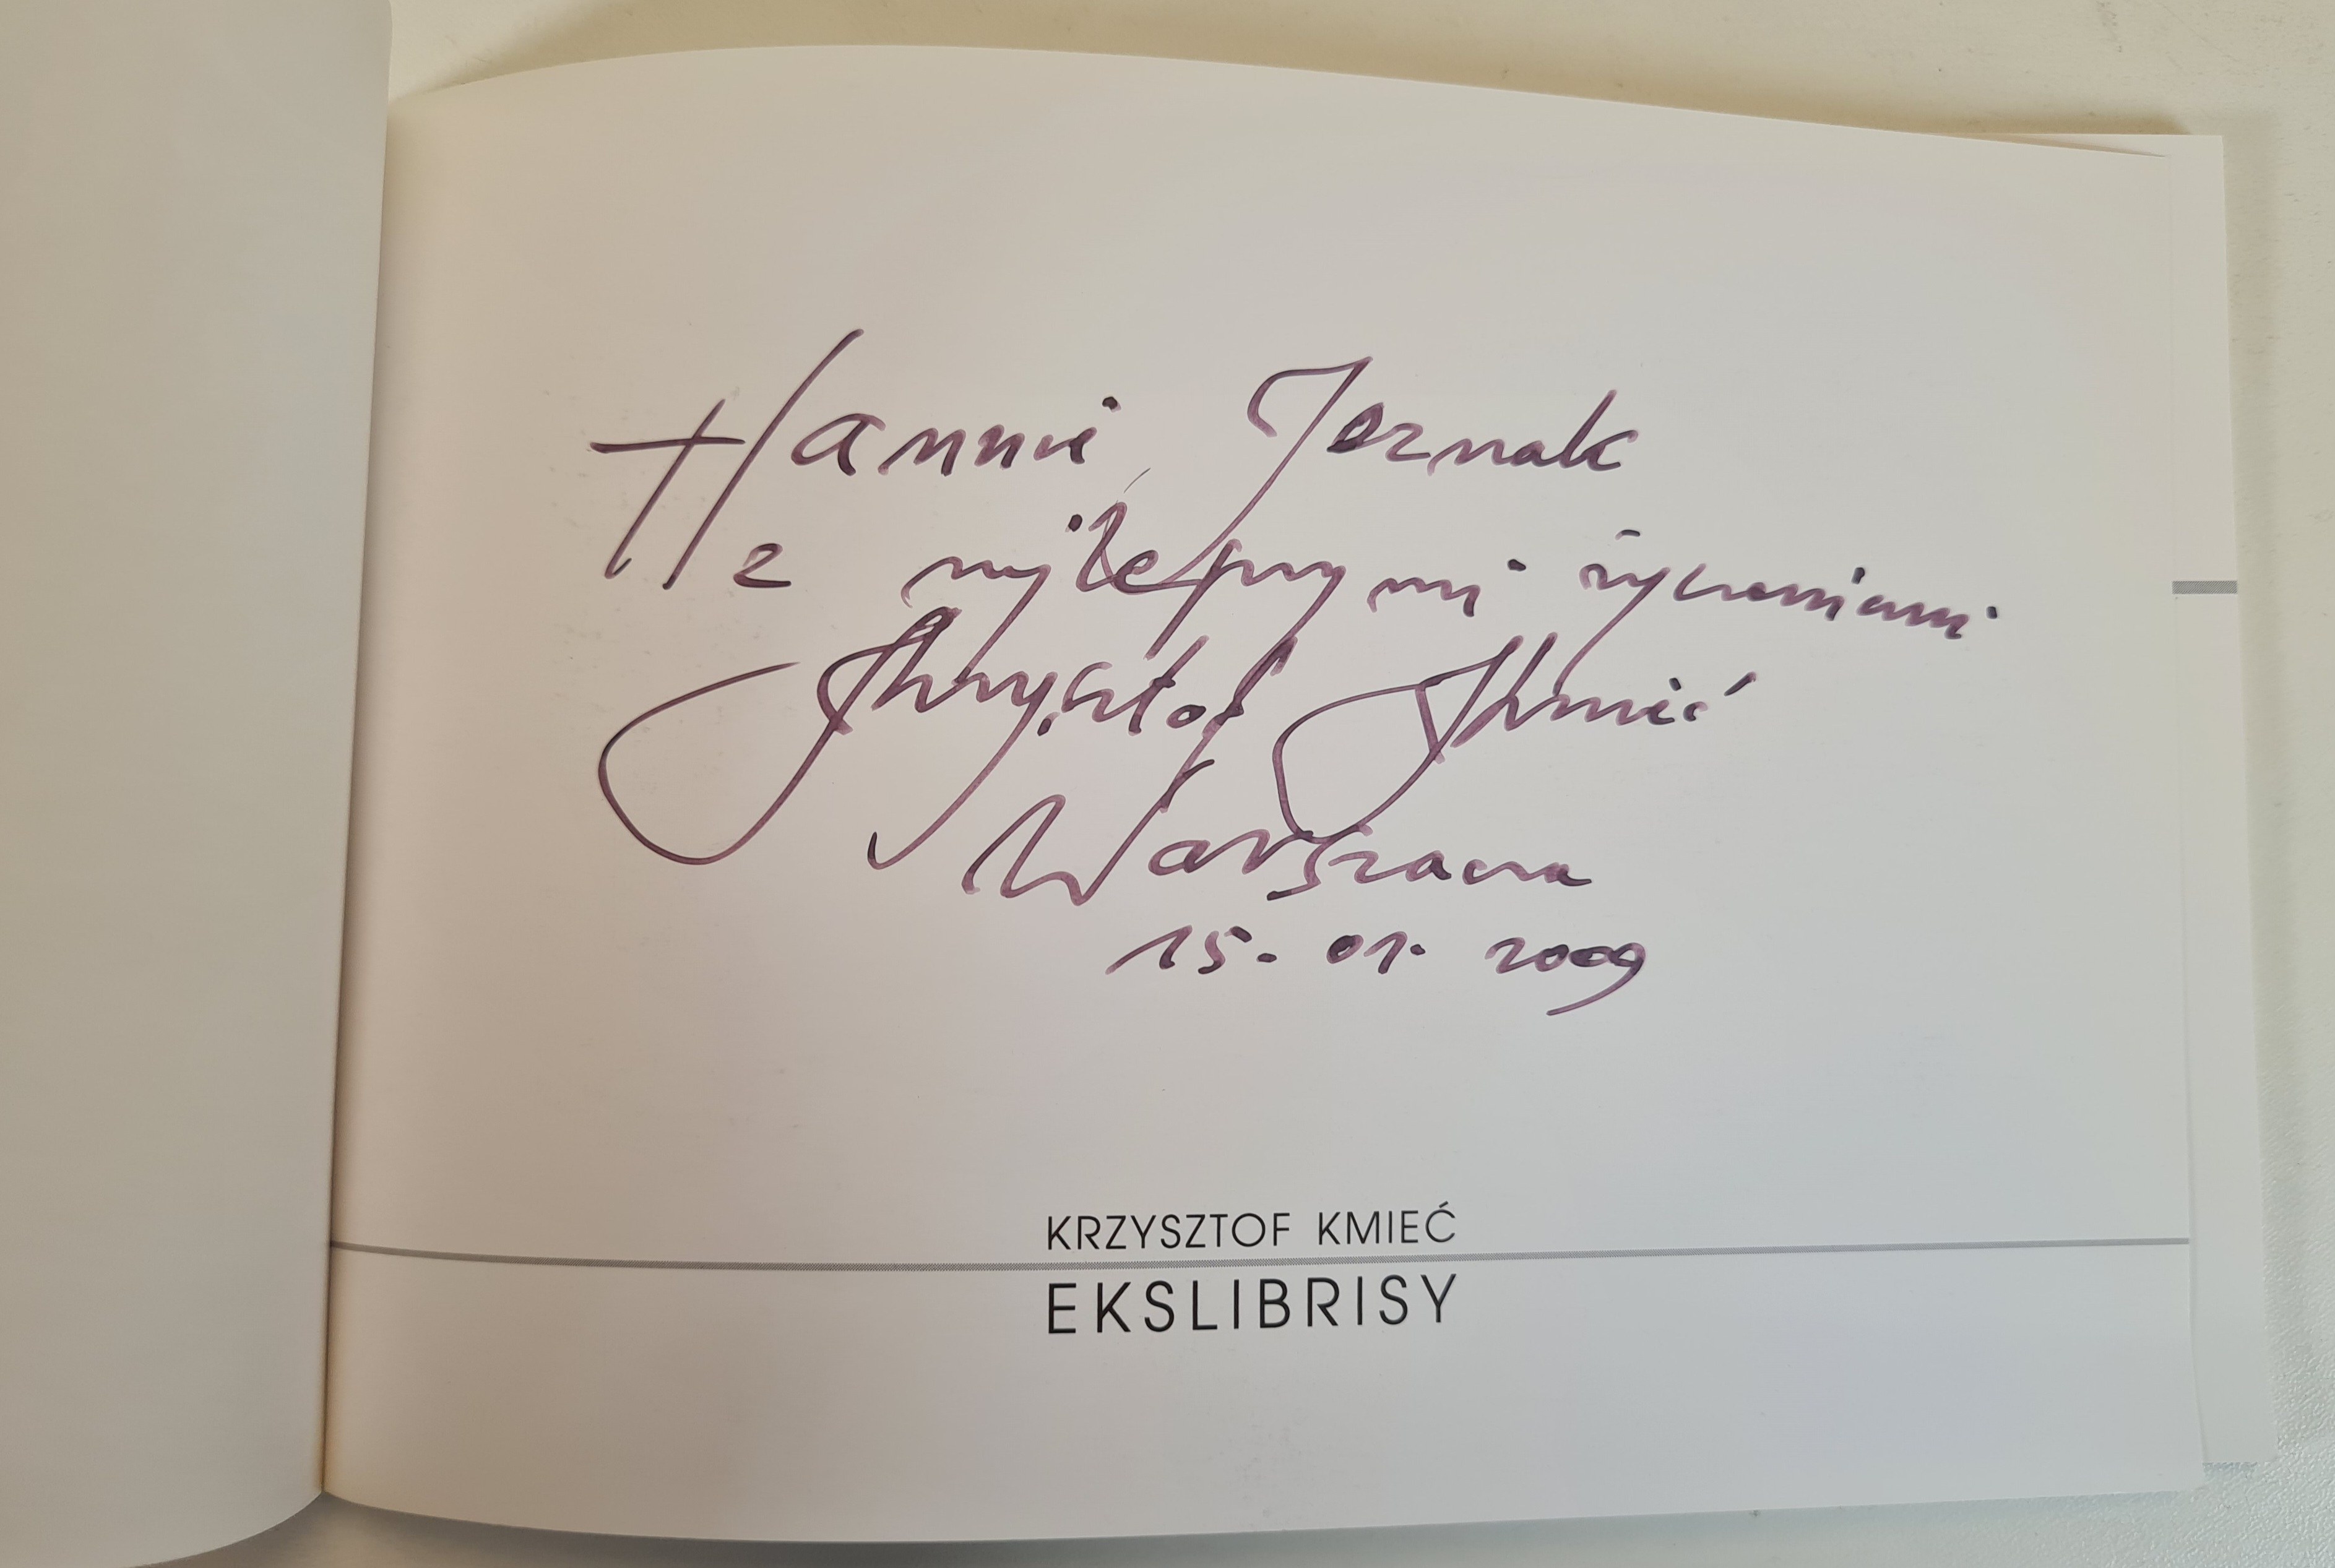 Hannie Joznak
z najlepszymi życzeniami
Krzysztof Kmieć
Warszawa
15.01.2009
KRZYSZTOF KMIEĆ
EKSLIBRISY